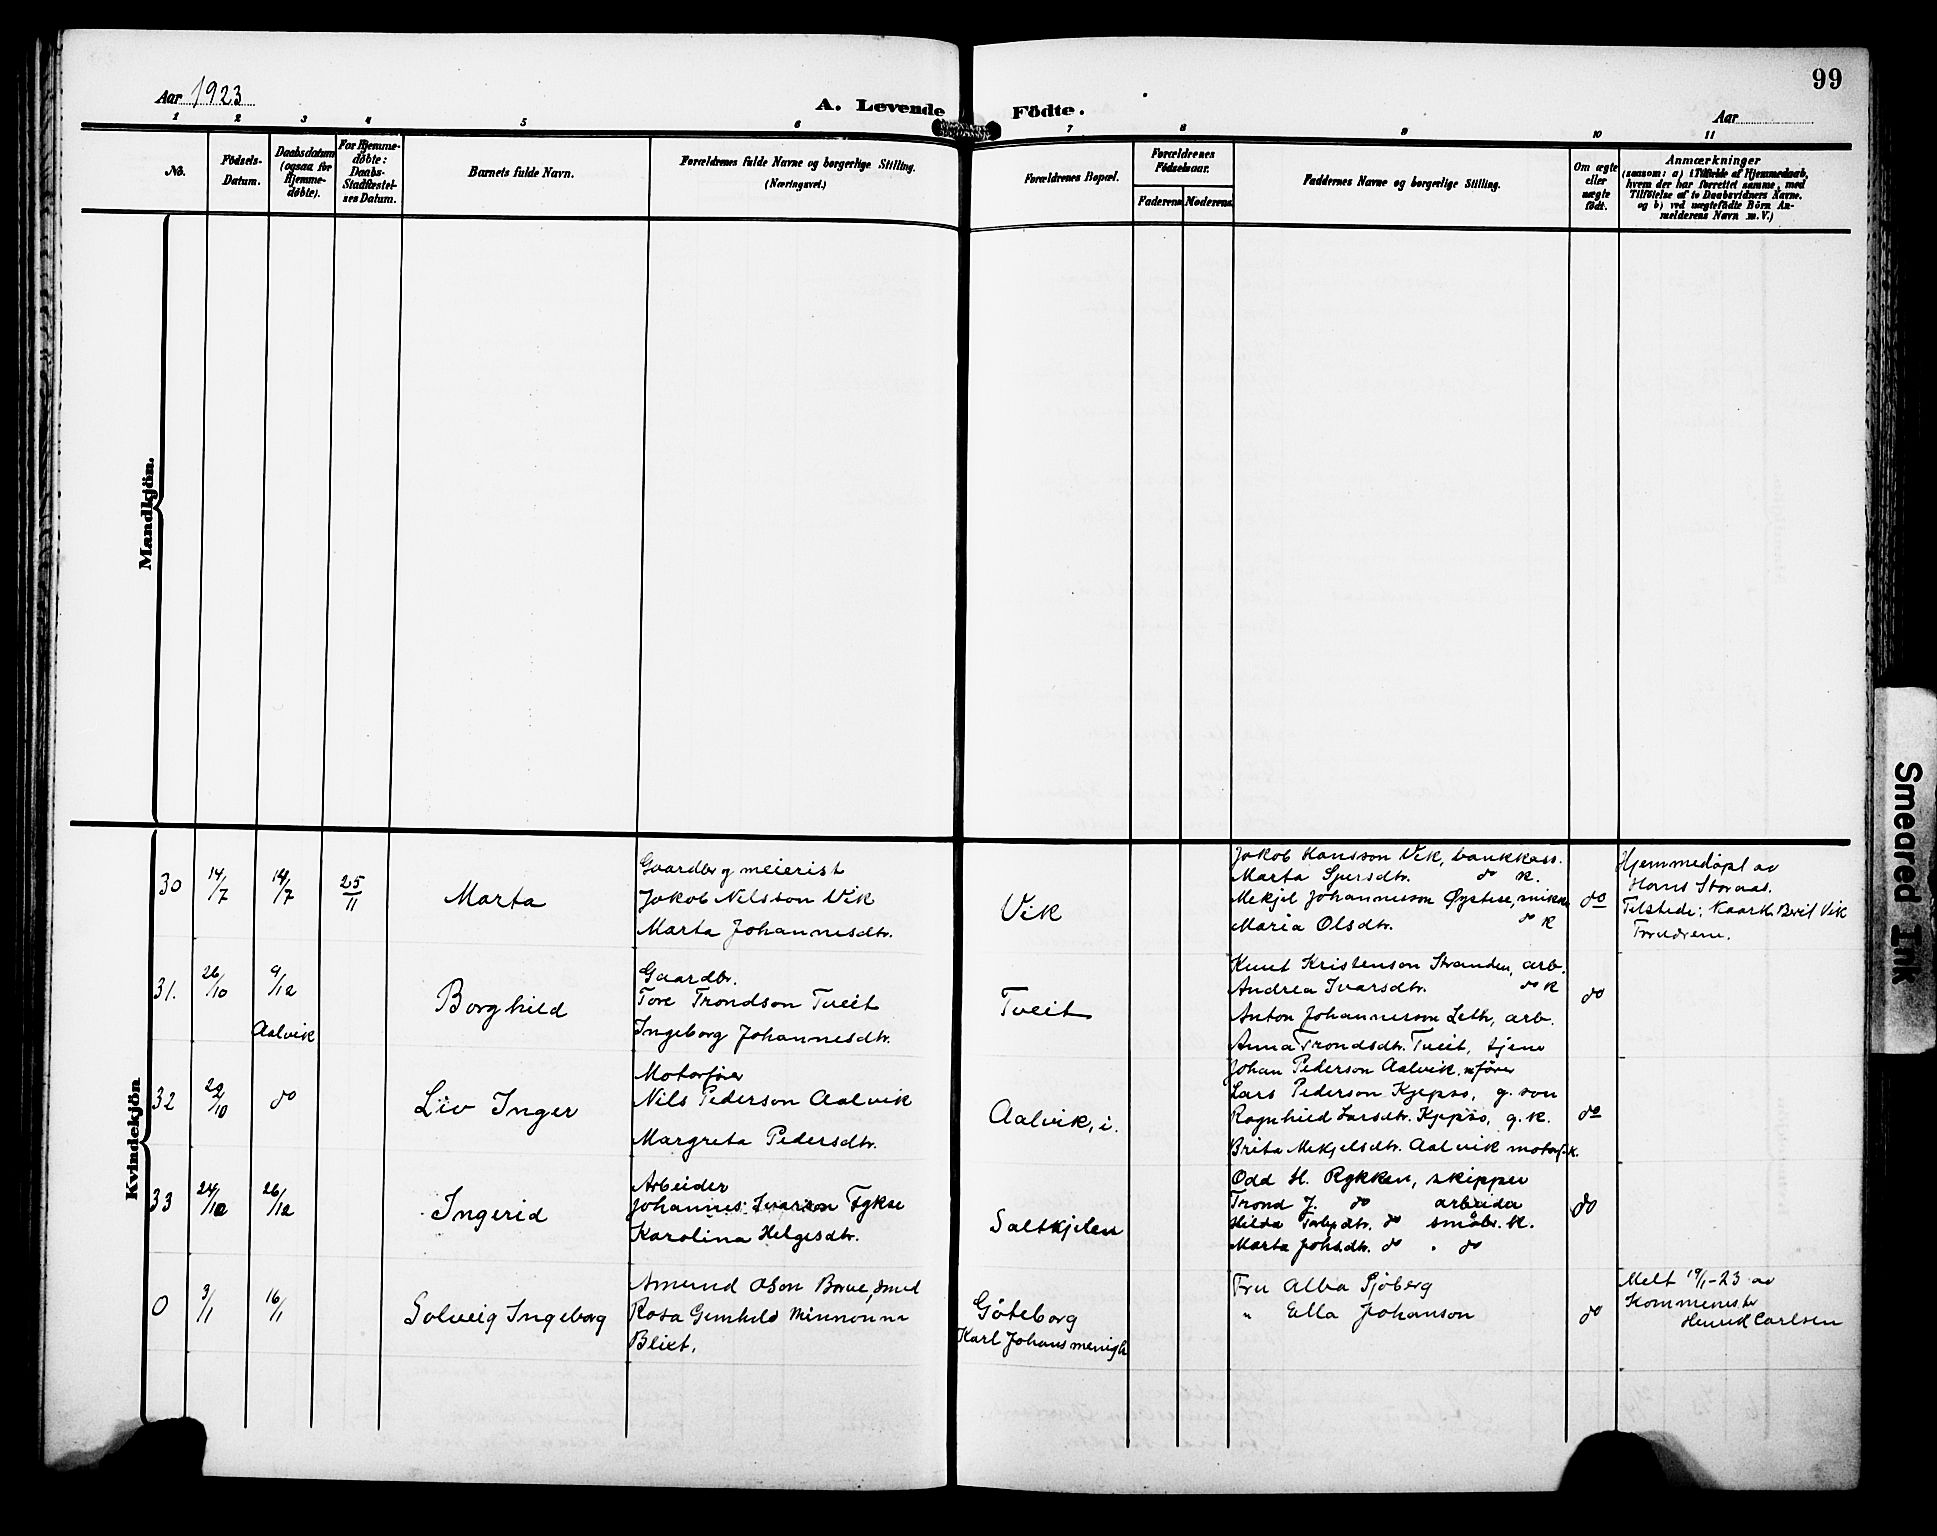 99
Aar 1923
A. Levende Födte.
Aar
1 2 3 4 5 6 7 8 9 10 11
No.
Födsels-
Datum.
Daabsdatum
(ogsaa for
Hjemme-
døbte).
For Hjemme-
døbte:
Daabs-
Stadfæstel-
ses Datum.
Barnets fulde Navn.
Forældrenes fulde Navne og borgerlige Stilling.
(Næringsvei.)
Forældrenes Bopæl.
Forældrenes
Födselsaar.
Faderens Moderens
Faddernes Navne og borgerlige Stilling.
Om ægte
eller
uægte
født.
Anmærkninger
(saasom: a) i Tilfælde af Hjemmedaab,
hvem der har forrettet samme, med
Tilföielse af to Daabsvidners Navne.
og b) ved uægtefödte Börn An-
melderens Navn m. V.)
Mandkjön.
Kvindekjön
30 14/7 14/7 25/11
Marta
Gaardbr og meierist
Jakob Nilsson Vik
Marta Johannesdtr.
Vik
Jakob Hansson Vik, bankkass.
Marta Sjursdtr. do k.
Mekjel Johannesson Øystese,
Maria Olsdtr. do k
do
Hjemmedøpt av
Hans Storaas.
Tilstede: Kaark. Berit Vik
Foreldrene.
31. 26/10 9/12
Aalvik
Borghild
Gaardbr.
Tore Trondson Tveit
Ingeborg Johannesdtr.
Tveit
Knut Kristenson Stranden, arb.
Andrea Ivarsdtr. do k
Anton Johannesson Leth, arb.
Anna Trondsdtr. Tveit, tjene
do
32 22/10 do
Liv Inger
Motorfører
Nils Pederson Aalvik
Margreta Pedersdtr.
Aalvik, i.
Johan Pederson Aalvik, mfører
Lars Pederson Kjepso, g. son
Ragnhild Larsdtr. Kjepso, g. k.
Brita Mekjelsdtr. Aalvik motorf. k.
do
33 24/10 26/12
Ingerid
Arbeider
Johannes Ivarson Fykse
Karolina Helgesdtr.
Saltkjelen
Odd H. Rykken, skipper
Trond J. do arbeider
Hilda Torbj.dtr. do småbr. k.
Marta Johs.dtr. do " do
do
0 3/1 16/1
Solveig Ingeborg
Amund Olson Borve, smed
Rosa Gunhild Minnonna
Blixt.
Göteborg
Karl Johans menigh
Fru Alba Sjöberg
" Ella Johanson
do
Melt 19/1-23 av
Kommenister
Henrik Carlsen
Smeared Ink